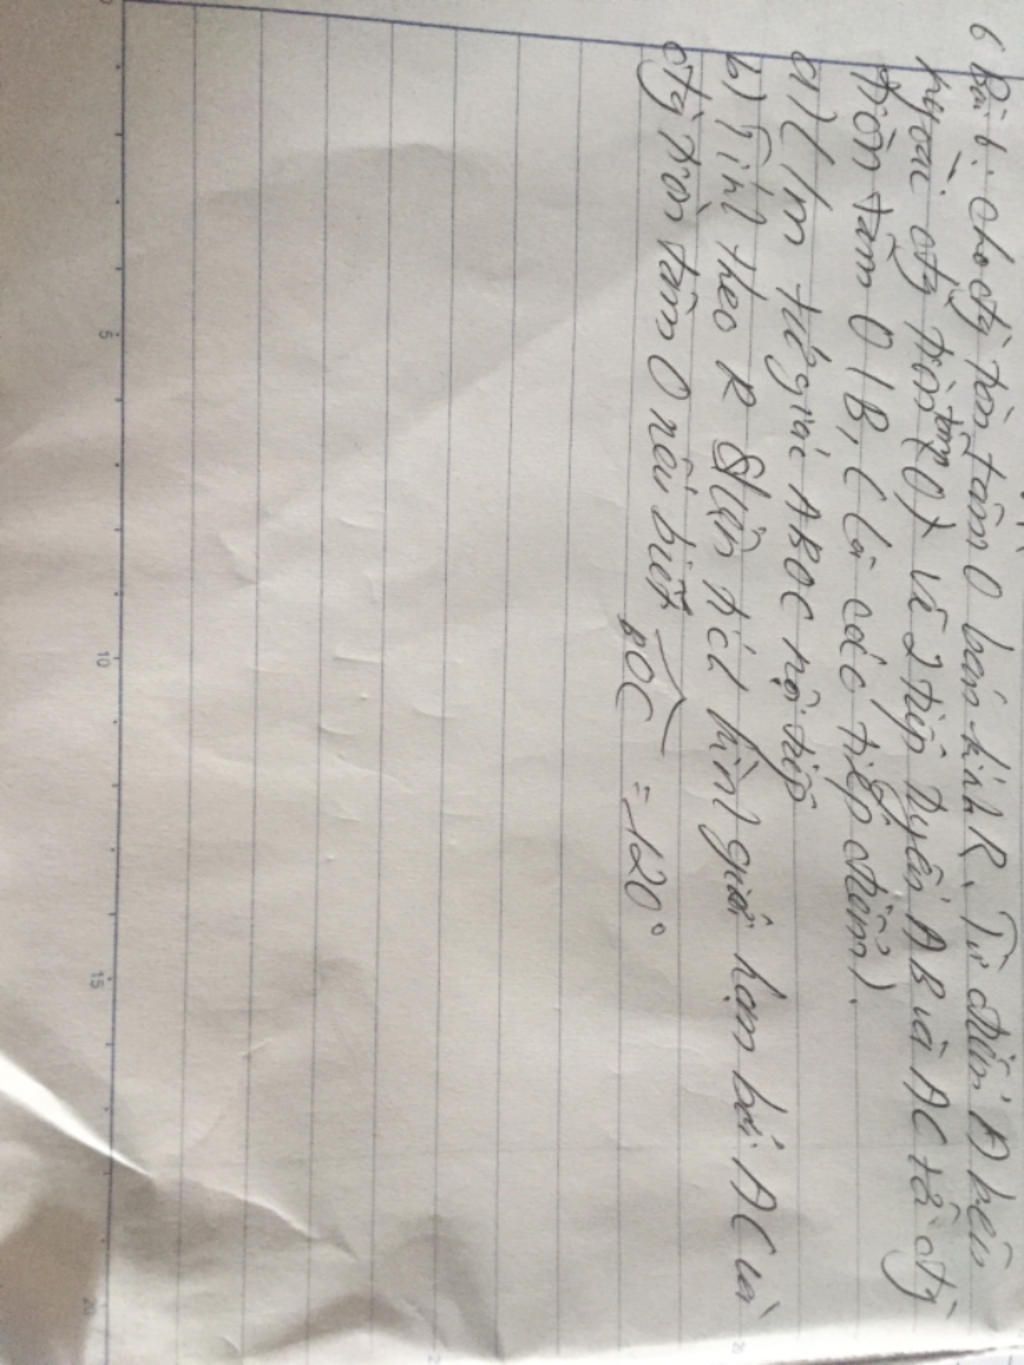 6 Bài 6: cho đg tròn tâm O bán kính R. Từ điểm A bên
ngoài đg tròn tâm (O) vẽ 2 tiếp tuyến AB và AC tới đg
tròn tâm O (B, C là các tiếp điểm).
a) C/m tứ giác ABOC nội tiếp
b) Tính theo R diện tích hình giới hạn bởi AC và
đg tròn tâm O nếu biết BOC = 120°
5
10
15
20